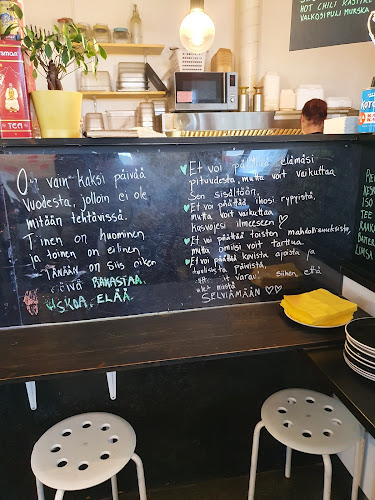 HOT CHILI KASTIKE
VALKOSIPULI MURSKA
TEA
On vain kaksi päivää
vuodesta, jolloin ei ole
mitään tehtävissä.
Toinen on huominen
ja toinen on eilinen.
Tänään on siis oikea
päivä RAKASTAA,
USKOA, ELÄÄ.
Et voi päättää elämäsi
pituudesta, mutta voit vaikuttaa
sen sisältöön.
Et voi päättää ihosi rypyistä,
mutta voit vaikuttaa
kasvojesi ilmeeseen ♡
Et voi päättää toisten mahdollisuuksista,
mutta omiisi voit tarttua.
Et voi päättää kovista ajoista ja
tuulisista päivistä,
siihen, että
SELVIÄMÄÄN ♡♡
ISO
TEE